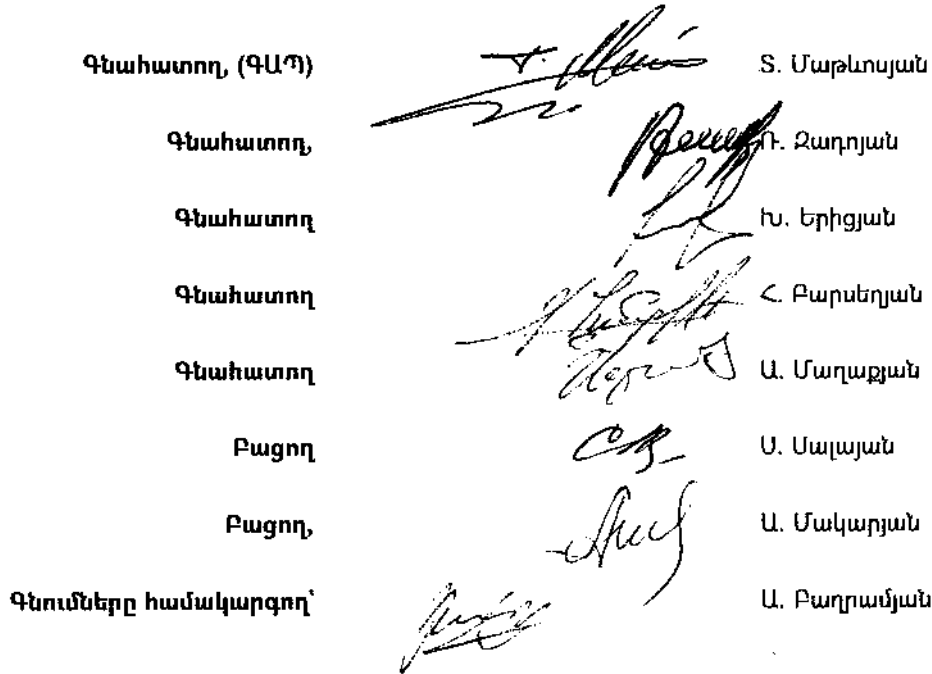 Գնահատող, (ԳԱՊ) Տ. Մաթևոսյան
Գնահատող, Ռ. Զադոյան
Գնահատող Խ. Երիցյան
Գնահատող Հ. Բարսեղյան
Գնահատող Ա. Մաղաքյան
Բացող Ս. Սալայան
Բացող, Ա. Մակարյան
Գնումները համակարգող՝ Ա. Բաղրամյան